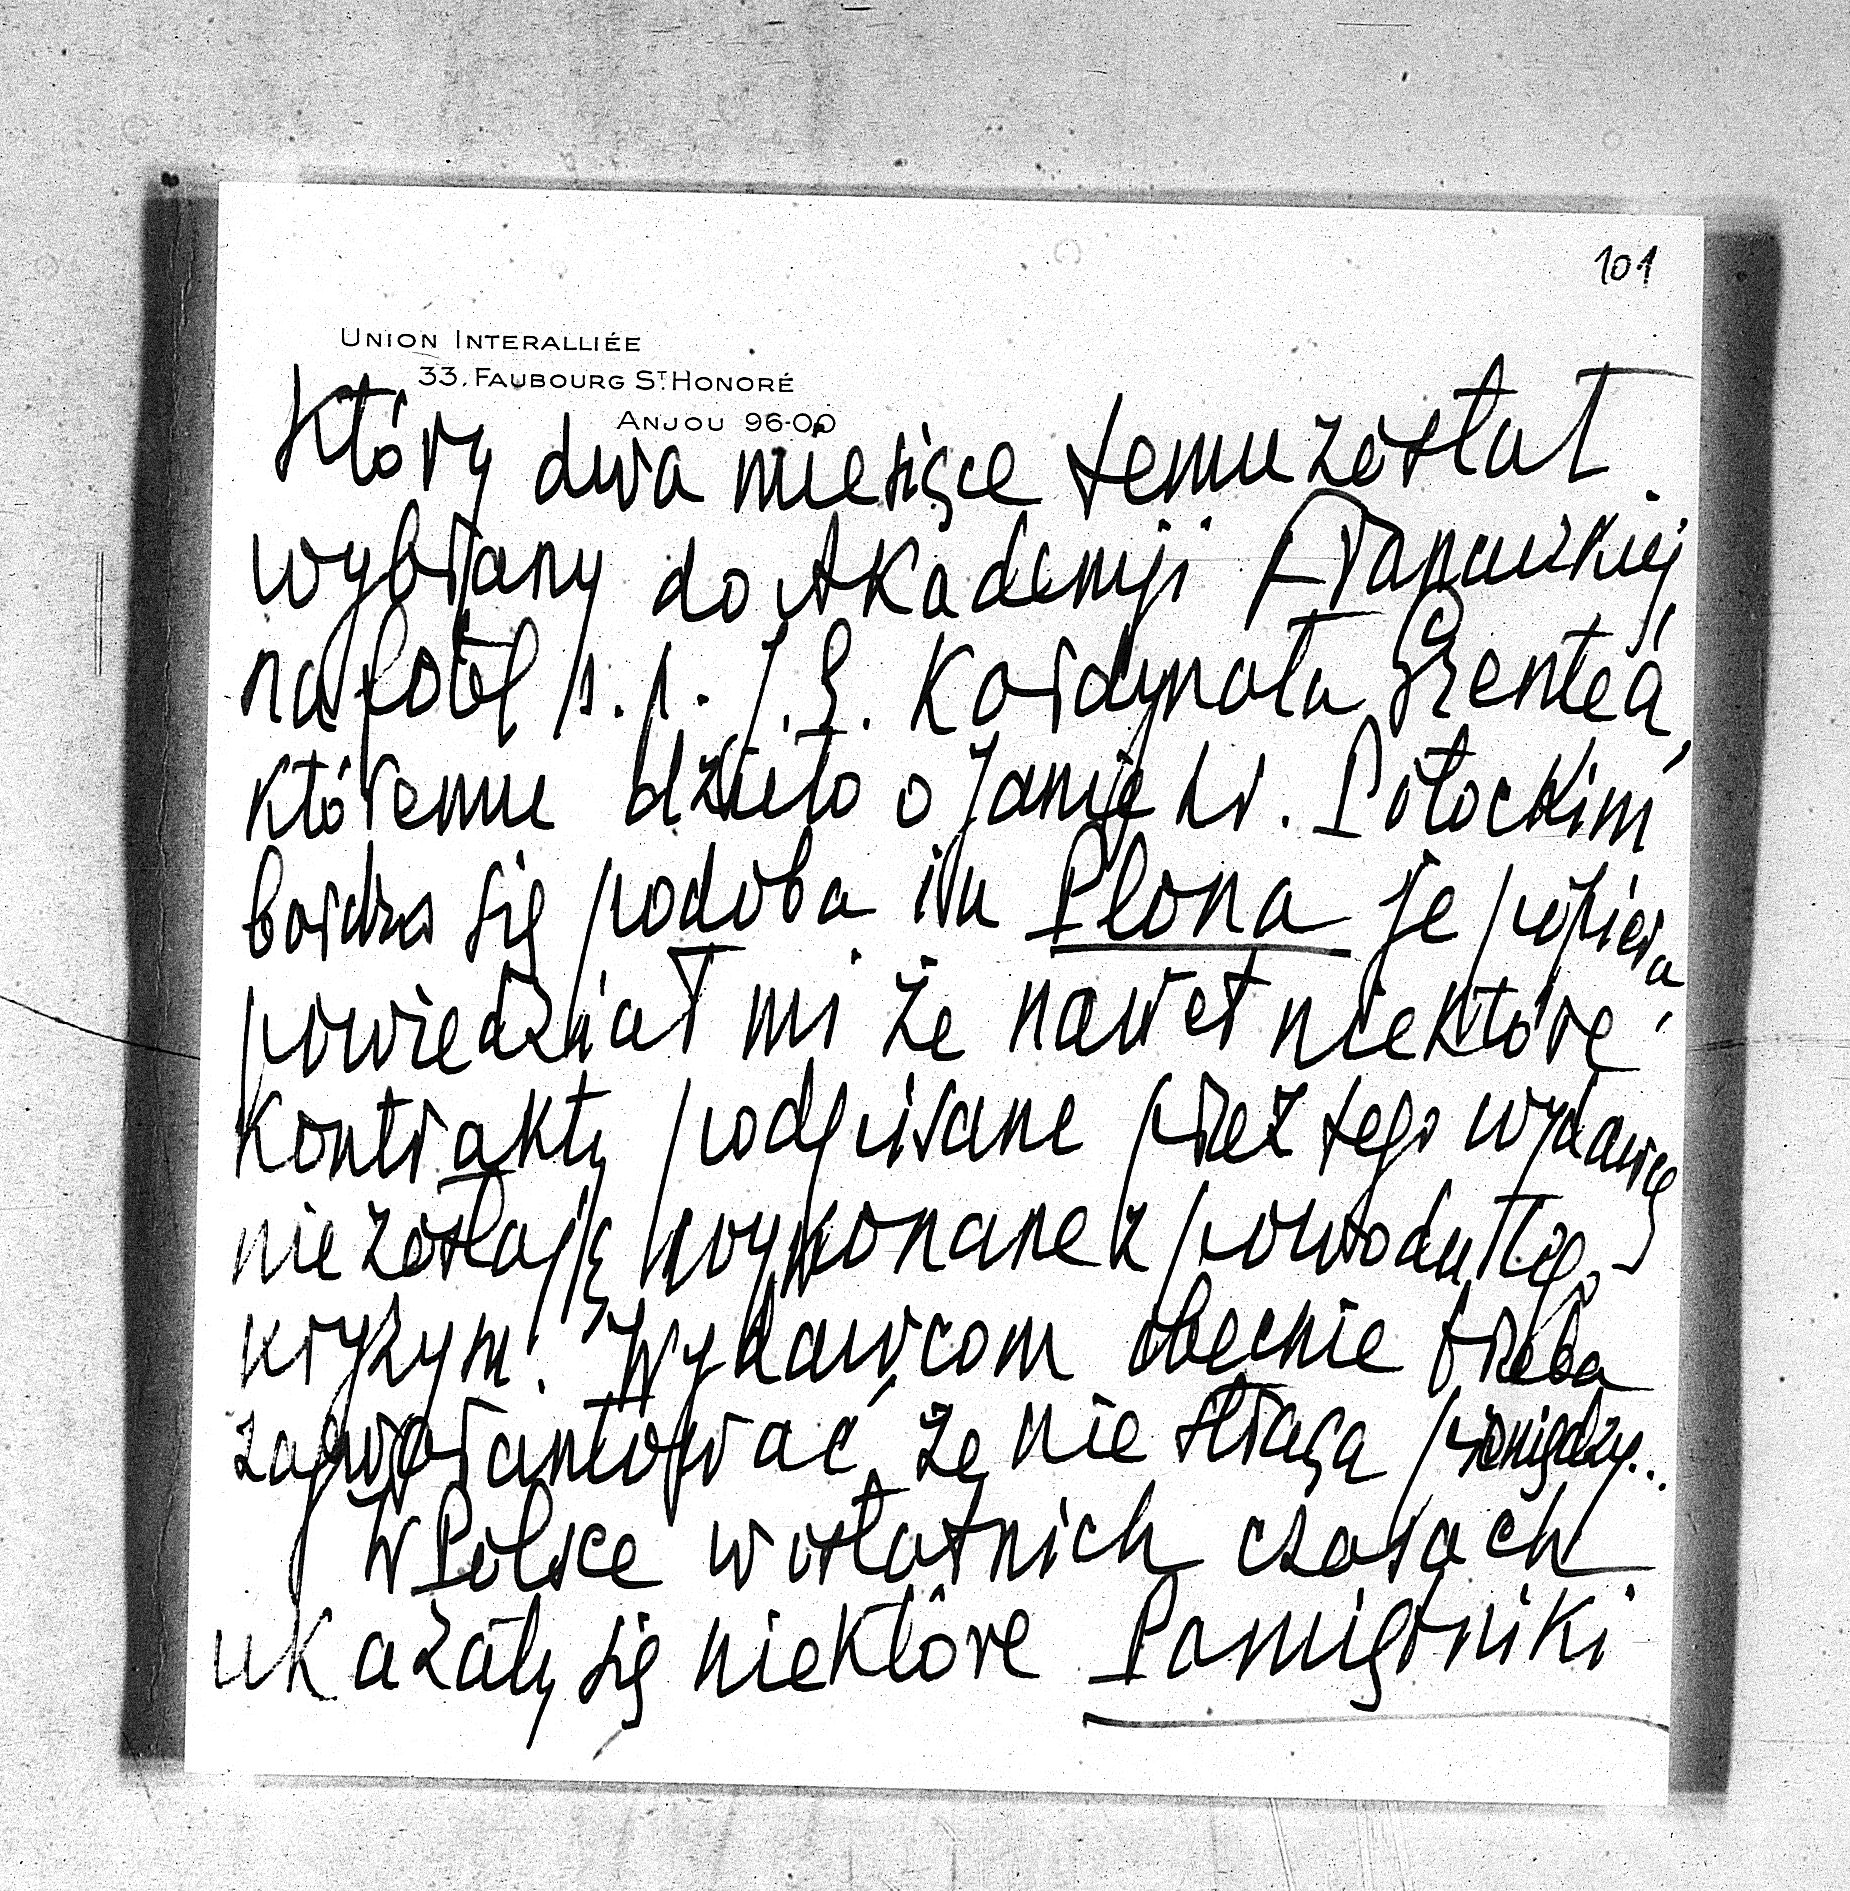 101
UNION INTERALLIÉE
33, FAUBOURG ST. HONORÉ
ANJOU 96-00
który dwa miesiące temu został
wybrany do Akademji Francuskiej
na fotel ś.p. J.E. Kardynała Grente'a,
któremu dzieło o Janie hr. Potockim
bardzo się podoba i u Plona je popiera,
powiedział mi że nawet niektóre
kontrakty podpisane przez tego wydawcę
nie zostają wykonane z powodu tego
kryzym. Wydawcom obecnie trzeba
zagwarantować, że nie stracą pieniędzy...
W Polsce w ostatnich czasach
ukazały się niektóre Pamiętniki